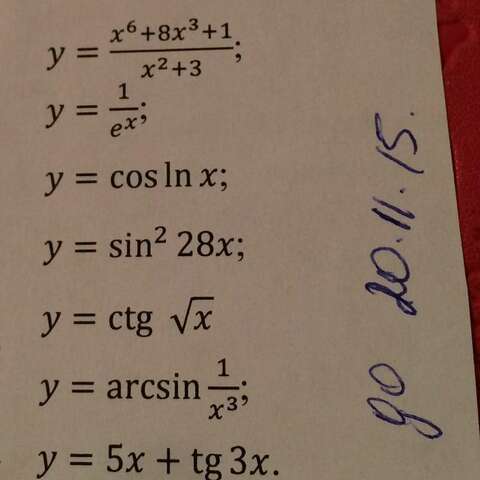 y = \frac{x^6+8x^3+1}{x^2+3};
y = \frac{1}{e^x};
y = cos ln x;
y = sin² 28x;
y = ctg √x
y = arcsin \frac{1}{x^3};
y = 5x + tg 3x.
до 20.11.15.